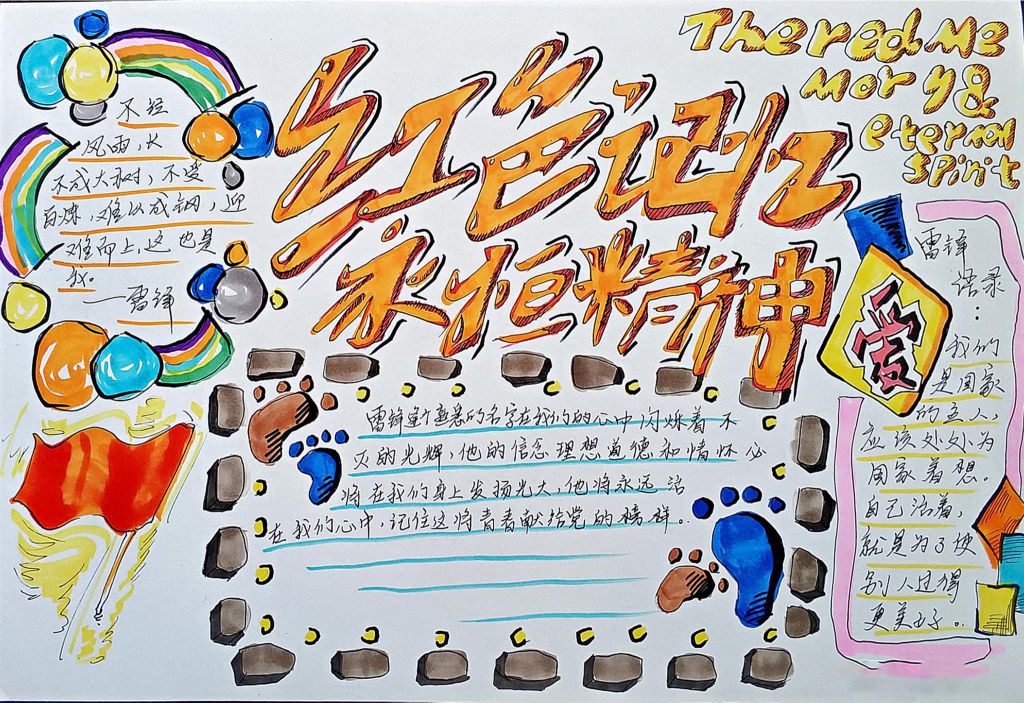 The red Me
Mory &
eternal
spirit
红色记忆
永恒精神
不经
风雨,长
不成大树,不受
百炼,难以成钢,迎
难而上,这也是
我。
——雷锋
雷锋这个熟悉的名字在我们的心中闪烁着不
灭的光辉,他的信念理想道德和情怀必
将在我们身上发扬光大,他将永远活
在我们心中,记住这将青春献给党的榜样。
爱
雷锋
语录
:
我们
是国家
的主人,
应该处处为
国家着想。
自己活着,
就是为了使
别人过得
更美好。